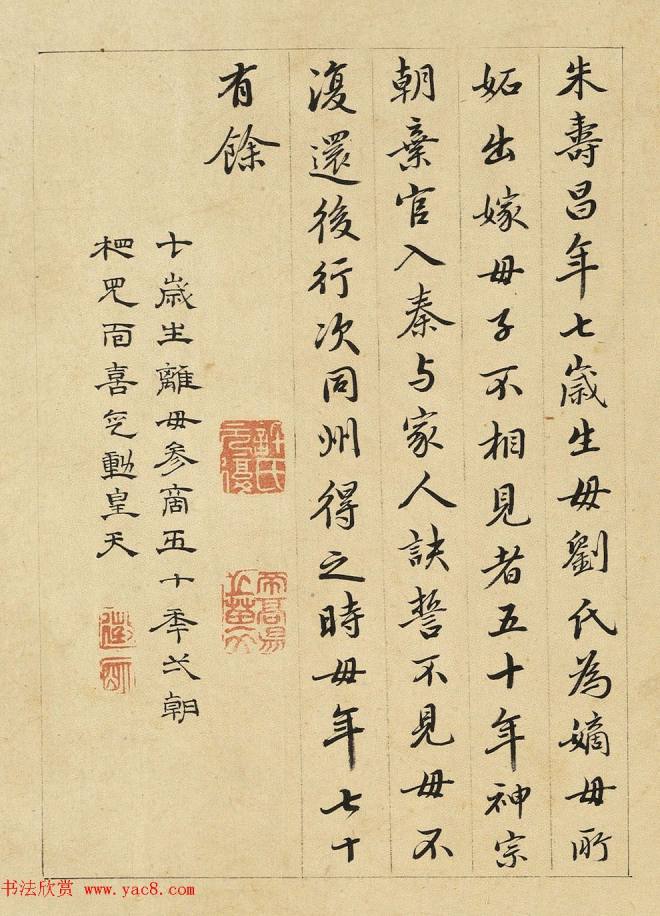 朱壽昌年七歲生母劉氏為嫡母所
妬出嫁母子不相見者五十年神宗
朝棄官入秦与家人訣誓不見母不
復還後行次同州得之時母年七十
有餘
七歲生離母參商五十季弌朝
相見面喜气動皇天
許氏元復
書法欣赏 www.yac8.com